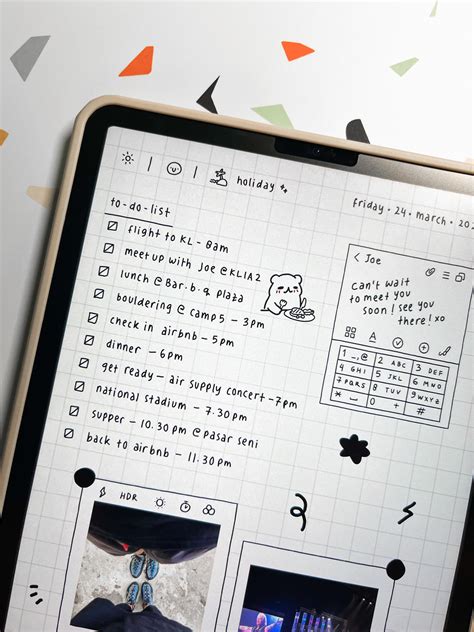 holiday
friday · 24 · march ·
to-do-list
flight to KL - 8am
meet up with Joe @ KLIA2
lunch @ Bar.b.q Plaza
bouldering @ camp5 - 3pm
check in airbnb - 5pm
dinner - 6pm
get ready - air supply concert - 7pm
national stadium - 7.30pm
supper - 10.30pm @ pasar seni
back to airbnb - 11.30pm
< Joe
can't wait
to meet you
soon! see you
there! xo
A
1 _,@ 2 ABC 3 DEF
4 GHI 5 JKL 6 MNO
7 PQRS 8 TUV 9 WXYZ
* 0 + #
HDR